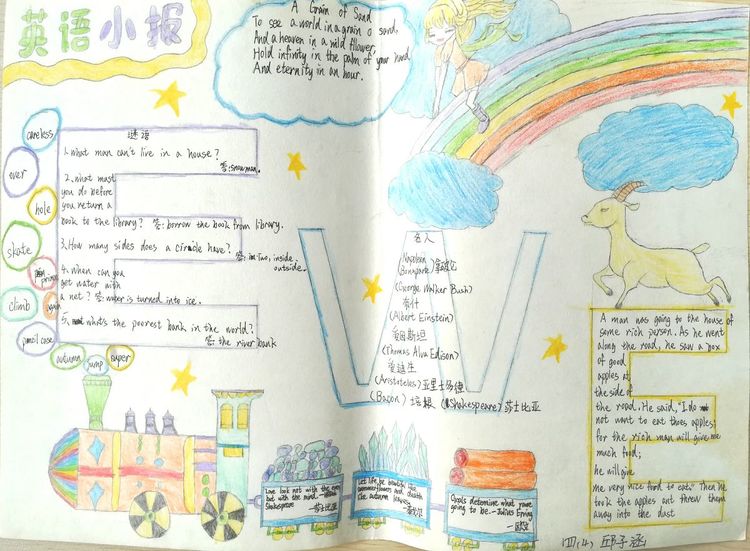 英语小报
A Grain of Sand
To see a world in a grain o sand,
And a heaven in a wild flower,
Hold infinity in the palm of your hand
And eternity in an hour.
careless
over
hole
skate
climb
pencil case
autumn
jump
super
谜语
1. what man can't live in a house?
答:snowman.
2. what must
you do before
you return a
book to the library? 答: borrow the book from library.
3. How many sides does a circle have?
答: Two, inside,
outside.
4. when can you
get water with
a net? 答: water is turned into ice.
5. what's the poorest bank in the world?
答: the river bank
名人
Napoleon
Bonaparte) 拿破仑
(George Walker Bush)
布什
(Albert Einstein)
爱因斯坦
(Thomas Alva Edison)
爱迪生
(Aristoteles) 亚里士多德
(Bacon) 培根 (Shakespeare) 莎士比亚
A man was going to the house of
some rich person. As he went
along the road, he saw a box
of good
apples at
the side of
the road. He said, "I do
not want to eat thoes apples;
for the rich man will give me
much food;
he will give
me very nice food to eat." Then he
took the apples ant threw them
away into the dust
Love look not with the eyes
but with the mind
Shakespeare
Let life be beautiful like
summer flowers and death
like autumn leaves
Goals determine what you're
going to be. - Julius Erving
四(4) 邱子涵